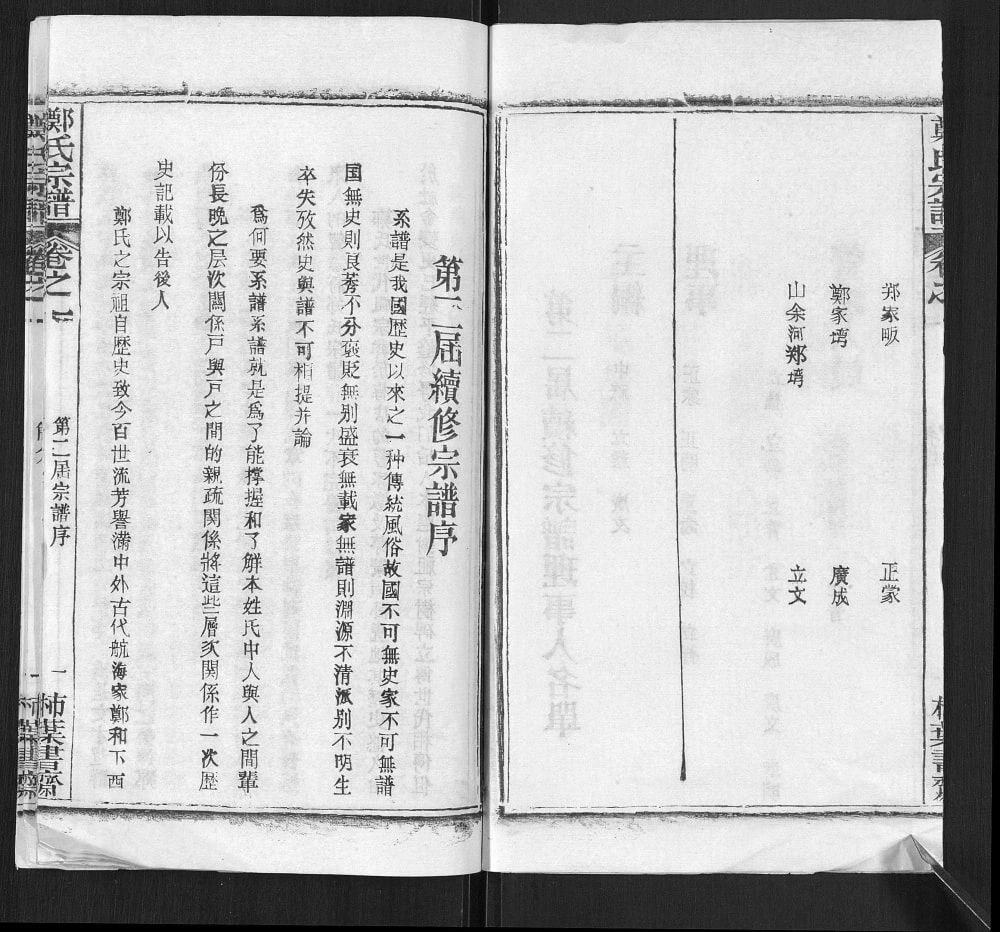 鄭氏宗譜
卷之
柿葉書齋
郑家畈
正蒙
鄭家塆
廣成
山余河郑塆
立文
第二届續修宗譜序
系譜是我國歷史以來之一种傳統風俗故國不可無史家不可無譜
国無史則良莠不分褒貶無别盛衰無載家無譜則淵源不清派别不明生
卒失攷然史與譜不可相提并論
爲何要系譜系譜就是爲了能撑握和了解本姓氏中人與人之間輩
份長晚之层次関係户與户之間的親疏関係將這些層次関係作一次歷
史記載以告後人
鄭氏之宗祖自歷史致今百世流芳譽满中外古代航海家鄭和下西
鄭氏宗譜
卷之一
第二届宗譜序
一
柿葉書齋